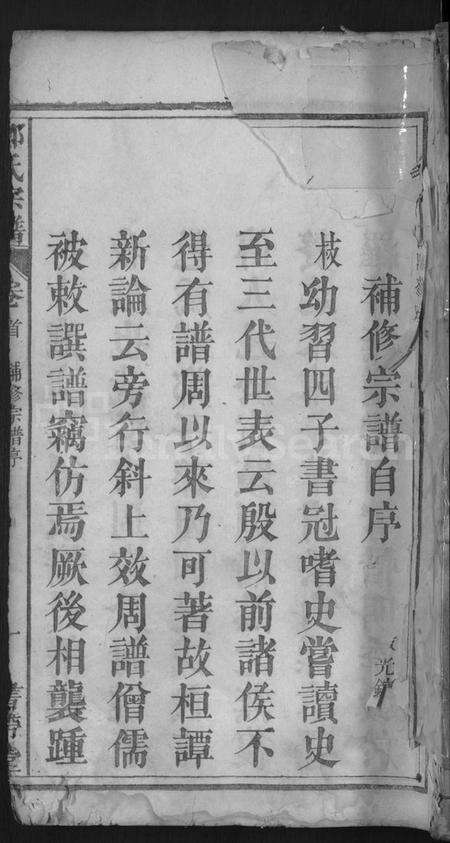 補修宗譜自序
棫幼習四子書冠嗜史嘗讀史
至三代世表云殷以前諸侯不
得有譜周以來乃可著故桓譚
新論云旁行斜上效周譜僧儒
被敕譔譜竊仿焉厥後相襲踵
氏宗譜
卷首
補修宗譜序
一
FamilySearch